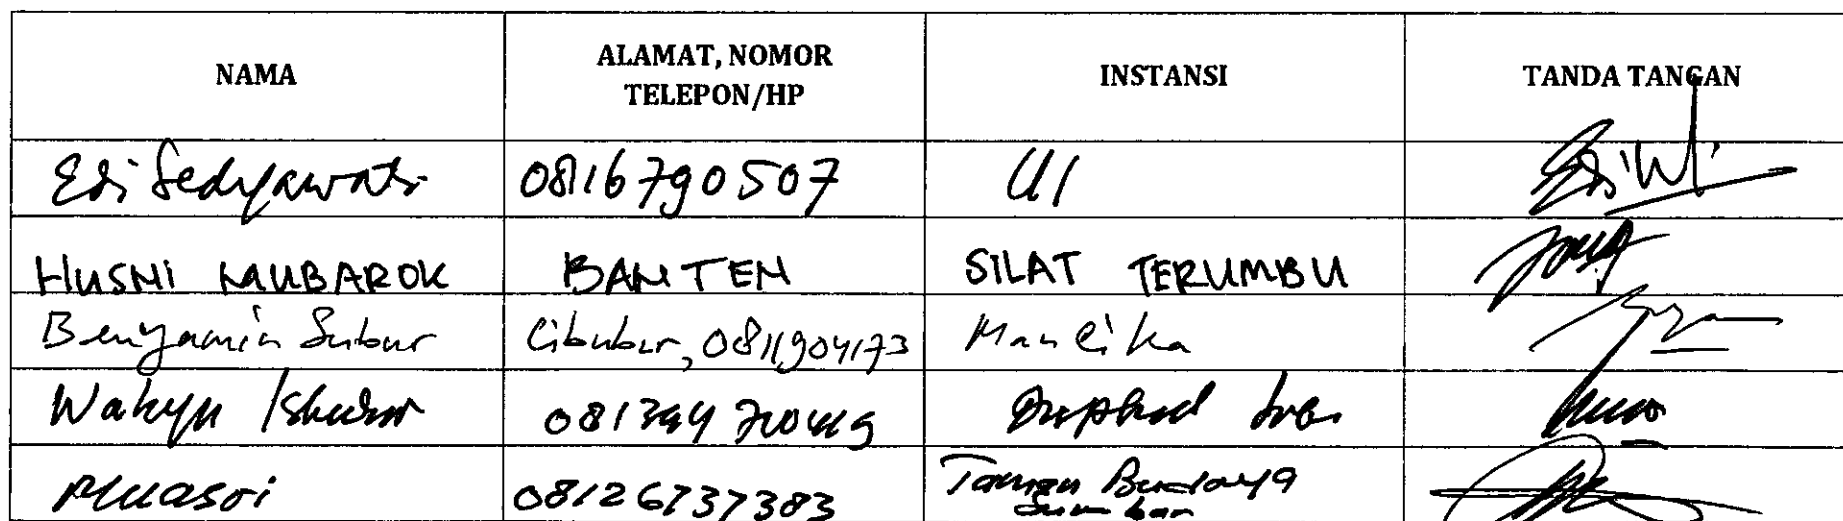 NAMA
ALAMAT, NOMOR
TELEPON/HP
INSTANSI
TANDA TANGAN
Edi Sedyawati 08167790507 UI
HUSNI MUBAROK BANTEN SILAT TERUMBU
Benyamin Subur Cibubur, 0811904173
Wahyu Iskandar
08126737383 Taman Budaya
Sumbar